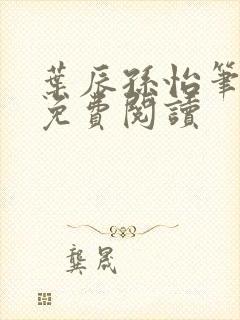 葉辰孫怡筆
免費閱讀
龔晟